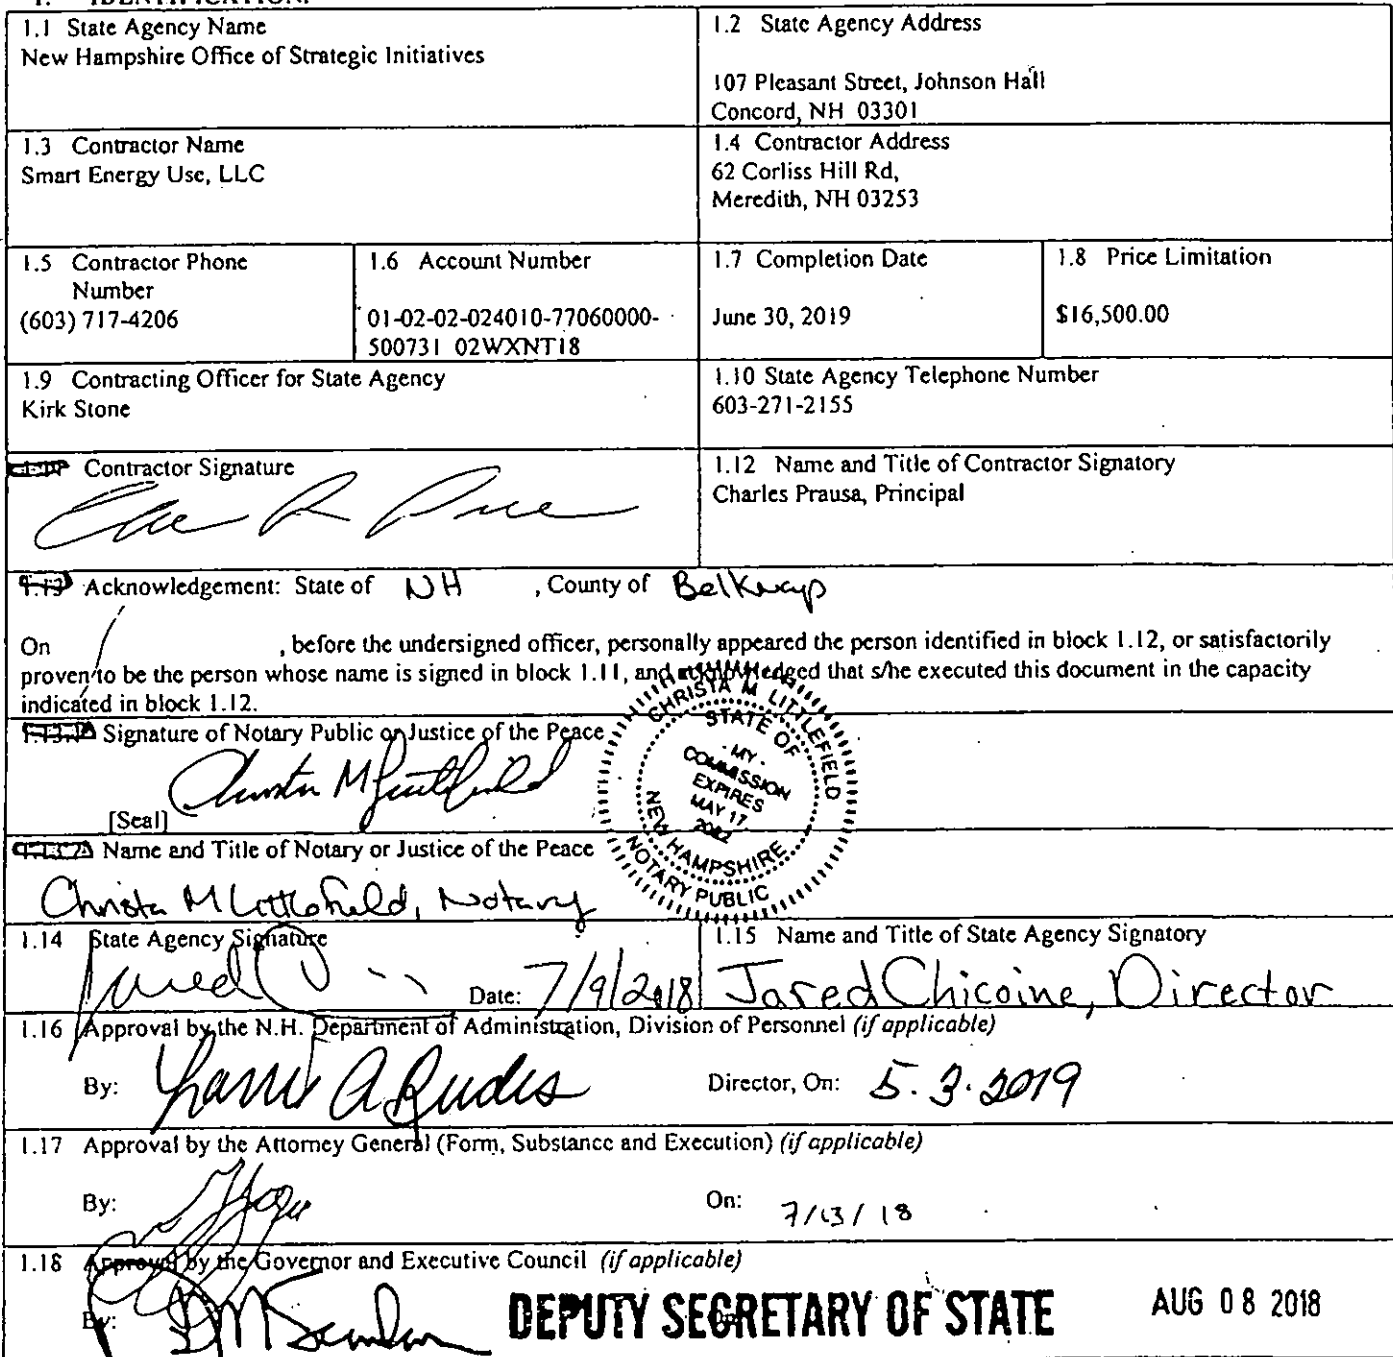 1. IDENTIFICATION.
1.1 State Agency Name
New Hampshire Office of Strategic Initiatives
1.2 State Agency Address
107 Pleasant Street, Johnson Hall
Concord, NH 03301
1.3 Contractor Name
Smart Energy Use, LLC
1.4 Contractor Address
62 Corliss Hill Rd,
Meredith, NH 03253
1.5 Contractor Phone
Number
(603) 717-4206
1.6 Account Number
01-02-02-024010-77060000-
500731 02WXNT18
1.7 Completion Date
June 30, 2019
1.8 Price Limitation
$16,500.00
1.9 Contracting Officer for State Agency
Kirk Stone
1.10 State Agency Telephone Number
603-271-2155
Contractor Signature
1.12 Name and Title of Contractor Signatory
Charles Prausa, Principal
Acknowledgement: State of NH , County of Belknap
On , before the undersigned officer, personally appeared the person identified in block 1.12, or satisfactorily
proven to be the person whose name is signed in block 1.11, and acknowledged that s/he executed this document in the capacity
indicated in block 1.12.
Signature of Notary Public or Justice of the Peace
[Seal]
CHRISTA M. LITTLEFIELD
STATE OF
NEW HAMPSHIRE
MY
COMMISSION
EXPIRES
MAY 17
2022
NOTARY PUBLIC
Name and Title of Notary or Justice of the Peace
Christa M Littlefield, Notary
1.14 State Agency Signature
Date: 7/9/2018
1.15 Name and Title of State Agency Signatory
Jared Chicoine, Director
1.16 Approval by the N.H. Department of Administration, Division of Personnel (if applicable)
By: Director, On: 5.3.2019
1.17 Approval by the Attorney General (Form, Substance and Execution) (if applicable)
By: On: 7/13/18
1.18 Approval by the Governor and Executive Council (if applicable)
By: DEPUTY SECRETARY OF STATE AUG 08 2018